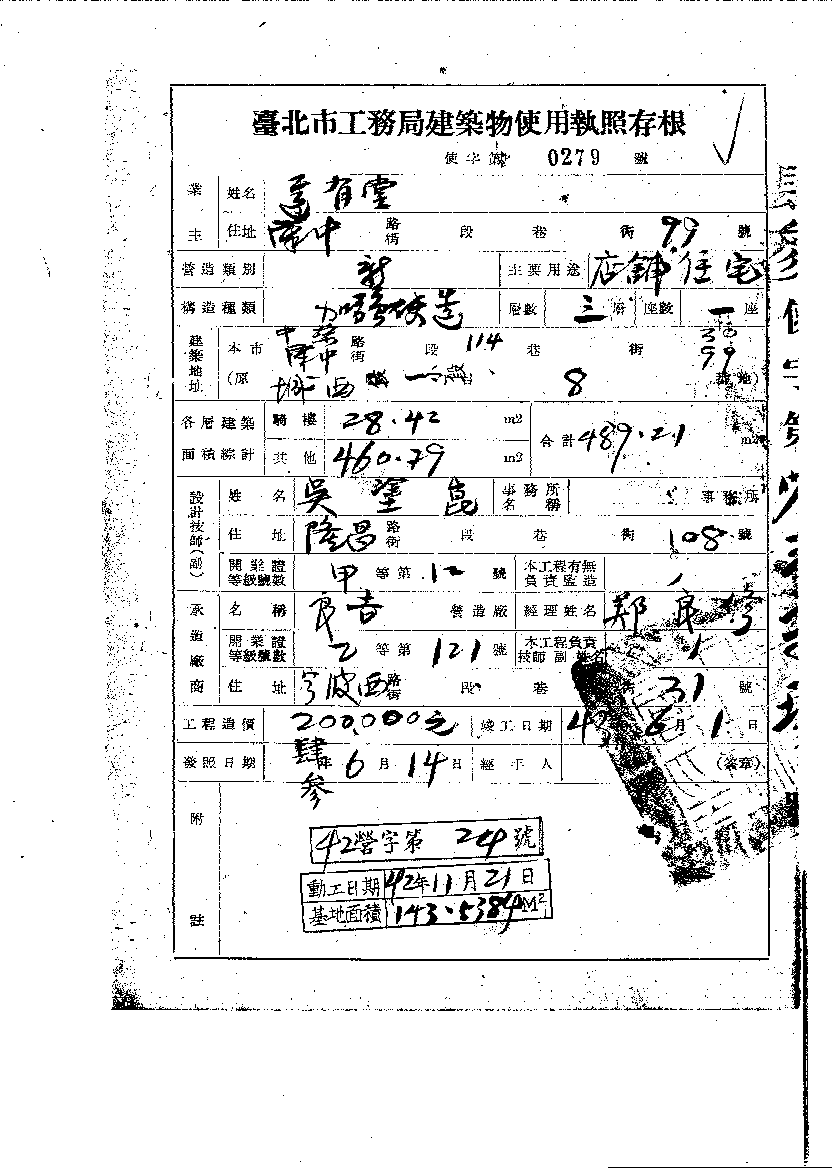 臺北市工務局建築物使用執照存根
使字第 0279 號
業主 姓名 有雲
住址 中 路街 段 巷 街 99 號
營造類別 新 主要用途 店舖住宅
構造種類 加強磚造 層數 三層 座數 一座
建築地址 本市 路街 段 114 巷 街 99
(原 城西 一 段 8 號地)
各層建築面積綜計 騎樓 28.42 m2 合計 489.21 m2
其他 460.79 m2
設計技師(副) 姓名 吳塗崑 事務所名稱 事務所
住址 隆昌 路街 段 巷 街 108 號
開業證等級號數 甲 等第 12 號 本工程有無負責監造
承造廠商 名稱 良吉 營造廠 經理姓名 鄭良修
開業證等級號數 乙 等第 121 號 本工程負責技師副姓名
住址 寧波西 路街 段 巷 街 31 號
工程造價 200,000元 竣工日期 43 6月1日
發照日期 肆參年 6月14日 經手人 (簽章)
附註
42營字第 24 號
動工日期 42年11月21日
基地面積 143.5384M²